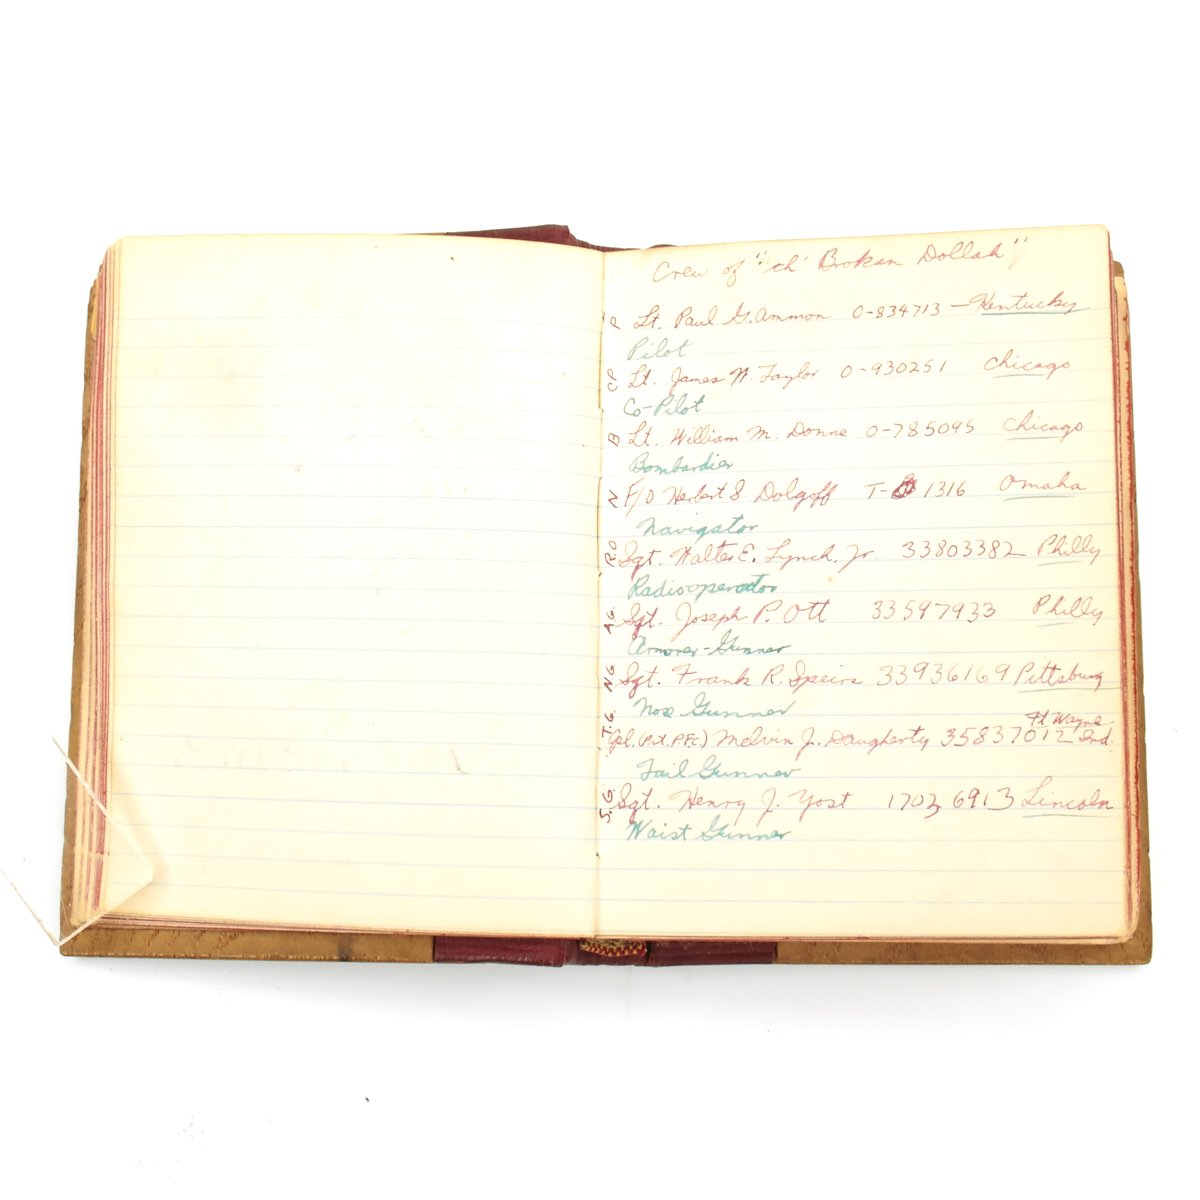 Crew of "'ch' Broken Dollah"
P Lt. Paul G. Ammon 0-834713 - Kentucky
Pilot
CP Lt. James W. Taylor 0-930251 Chicago
Co-Pilot
B Lt. William M. Donne 0-785095 Chicago
Bombardier
N F/O Herbert S. Dolgoff T- 1316 Omaha
Navigator
RO Sgt. Walter E. Lynch, Jr. 33803382 Philly
Radiooperator
AG. Sgt. Joseph P. Ott 33597933 Philly
Armorer-Gunner
NG Sgt. Frank R. Speirs 33936169 Pittsburg
Nose Gunner
T.G. Cpl. (Pvt. PFC) Melvin J. Daugherty 35837012 Ft Wayne Ind.
Tail Gunner
S.G. Sgt. Henry J. Yost 17026913 Lincoln
Waist Gunner